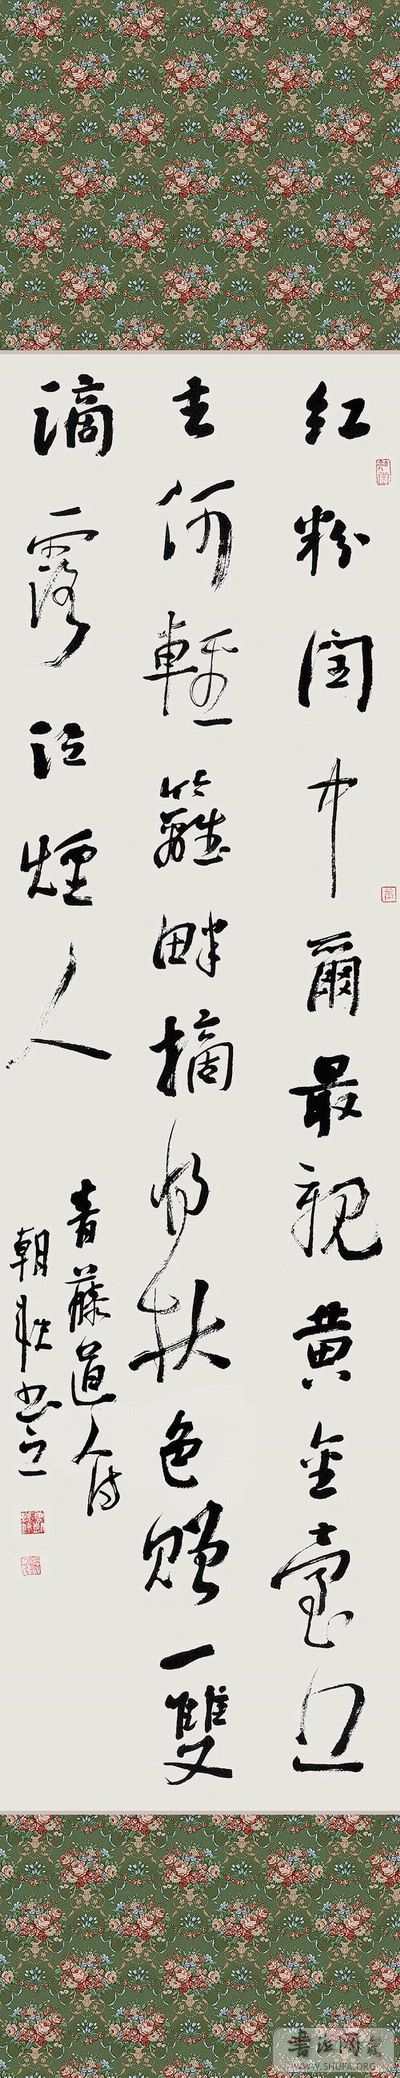 紅粉閨中爾最親黃金臺邊
主何輕籬畔摘將秋色贈一雙
滴露泣煙人
青藤道人詩
朝書之
WWW.SHUFA.ORG